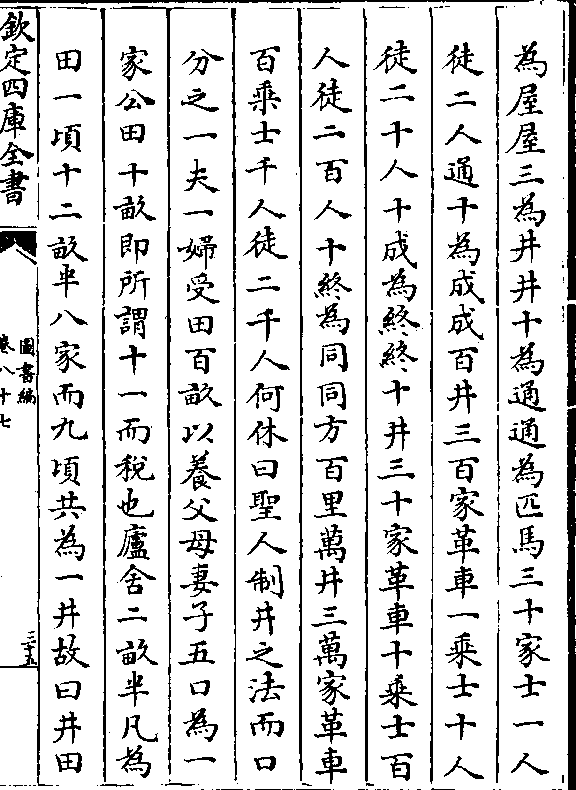 為屋屋三為井井十為通通為匹馬三十家士一人
徒二人通十為成成百井三百家革車一乘士十人
徒二十人十成為終終十井三十家革車十乘士百
人徒二百人十終為同同方百里萬井三萬家革車
百乘士千人徒二千人何休曰聖人制井之法而口
分之一夫一婦受田百畝以養父母妻子五口為一
家公田十畝即所謂十一而稅也廬舍二畝半凡為
田一頃十二畝半八家而九頃共為一井故曰井田
欽定四庫全書
圖書編
卷八十七
三十五